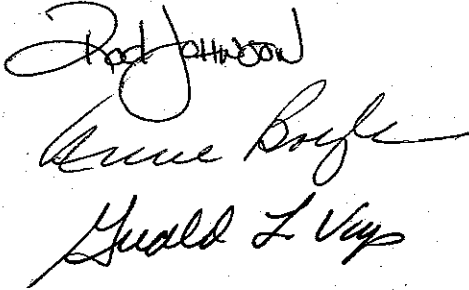 Rod Johnson
Anne Boyle
Gerald L